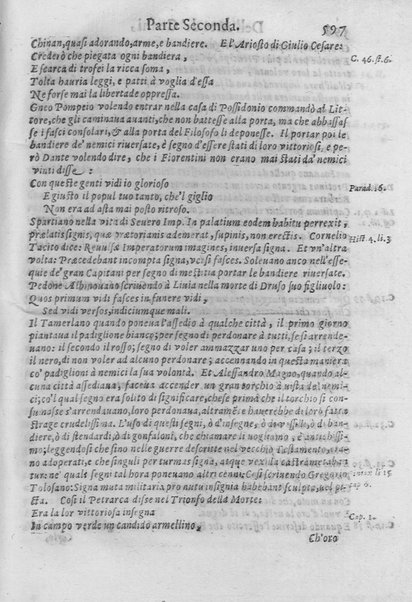 Parte Seconda. 597
Chinan, quasi adorando, arme, e bandiere. E l'Ariosto di Giulio Cesare:
Crederò che piegata ogni bandiera, C. 46. st. 6.
E fearca di trofei la ricca soma,
Tolta hauria leggi, e patti à voglia d'essa
Ne forse mai la libertade oppressa.
Gneo Pompeio volendo entrar nella casa di Possidonio commandò al Lit-
tore, che gli caminaua auanti, che non battesse alla porta, ma che abbassas-
se i fasci consolari, & alla porta del Filosofo li deponesse. Il portar poi le
bandiere de' nemici riuersate, è segno d'essere stati di loro vittoriosi, e pe-
rò Dante volendo dire, che i Fiorentini non erano mai stati da' nemici
vinti disse:
Con queste genti vidi io glorioso Parad. 16.
E giusto il popul tuo tanto, che'l giglio
Non era ad asta mai posto ritroso.
Spartiano nella vita di Seuero Imp. In palatium eodem habitu perrexit,
prælatis signis, quæ tradiderant, supinis, non erectis. Cornelio Hist. 4. li. 3
Tacito dice: Reuulsæ Imperatorum imagines, inuersa signa. Et vn'altra
volta: Præcedebant incompta signa, versi fasces. Soleuano anco nell'esse-
quie de' gran Capitani per segno di mestitia portar le bandiere riuersate.
Pedone Albinouano scriuendo à Liuia nella morte di Druso suo figliuolo:
Quos primum vidi fasces in funere vidi,
Sed vidi versos, indiciumque mali.
Il Tamerlano quando poneua l'assedio à qualche città, il primo giorno
piantaua il padiglione bianco, per segno di perdonare à tutti, se si arrende-
uano: il secondo il rosso, segno di voler ammazzare vno per casa; il terzo
il nero, di non voler ad alcuno perdonare; accennando in questa manie-
ra co' padiglioni à nemici la sua volontà. Et Alessandro Magno, quando al-
cuna città assediaua, faceua accender vn gran torchio à vista de' nemi-
ci; co'l qual segno era solito di significare, che se prima che il torchio si con-
sumasse s'arrendeuano, loro perdonaua, altramente hauerebbe di loro fatta
strage crudelissima. L'vso di questi segni, ò d'insegne, ò diuise, ò di ban-
diere, ò di stendardi, ò di gonfaloni, che chiamare li vogliamo, è antichissi-
mo; leggendosi che sino nelle guerre descritte nel vecchio Testamento, era-
no adoperati, e che singuli per turmas signa, atque vexilla castrametaba-
tur ne' quali segni tal hora poneuano altri cenni. Così scriuendo Gregorio
Tolosano: Signa muta militaria pro nutu insignia habebant sculpta, vel pi-
cta. Cosi il Petrarca disse nel Trionfo della Morte:
Era la lor vittoriosa insegna Cap. 1.
In campo verde vn candido armellino,
Ch'oro